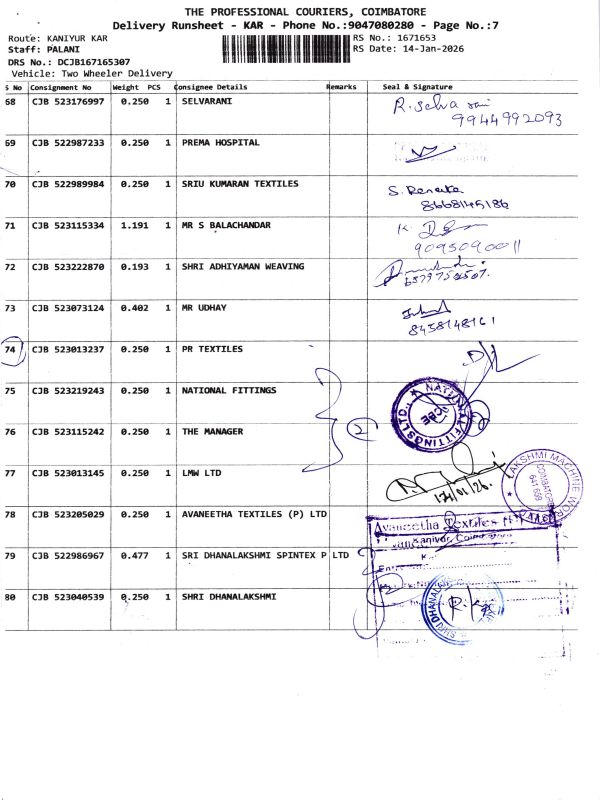 THE PROFESSIONAL COURIERS, COIMBATORE
Delivery Runsheet - KAR - Phone No.:9047080280 - Page No.:7
Route: KANIYUR KAR
RS No.: 1671653
Staff: PALANI
RS Date: 14-Jan-2026
DRS No.: DCJB167165307
Vehicle: Two Wheeler Delivery
S No Consignment No Weight PCS Consignee Details Remarks Seal & Signature
68 CJB 523176997 0.250 1 SELVARANI R. Selva rani
9944992093
69 CJB 522987233 0.250 1 PREMA HOSPITAL
70 CJB 522989984 0.250 1 SRIU KUMARAN TEXTILES S. Renuka
8668145186
71 CJB 523115334 1.191 1 MR S BALACHANDAR K.
9095090011
72 CJB 523222870 0.193 1 SHRI ADHIYAMAN WEAVING
73 CJB 523073124 0.402 1 MR UDHAY
8438148161
74 CJB 523013237 0.250 1 PR TEXTILES
75 CJB 523219243 0.250 1 NATIONAL FITTINGS
NATIONAL FITTINGS LTD. CBE
76 CJB 523115242 0.250 1 THE MANAGER 2
77 CJB 523013145 0.250 1 LMW LTD
14/01/26.
LAKSHMI MACHINE WOR
COIMBATORE
641 659
78 CJB 523205029 0.250 1 AVANEETHA TEXTILES (P) LTD
Avaneetha Textiles
79 CJB 522986967 0.477 1 SRI DHANALAKSHMI SPINTEX P LTD
80 CJB 523040539 0.250 1 SHRI DHANALAKSHMI